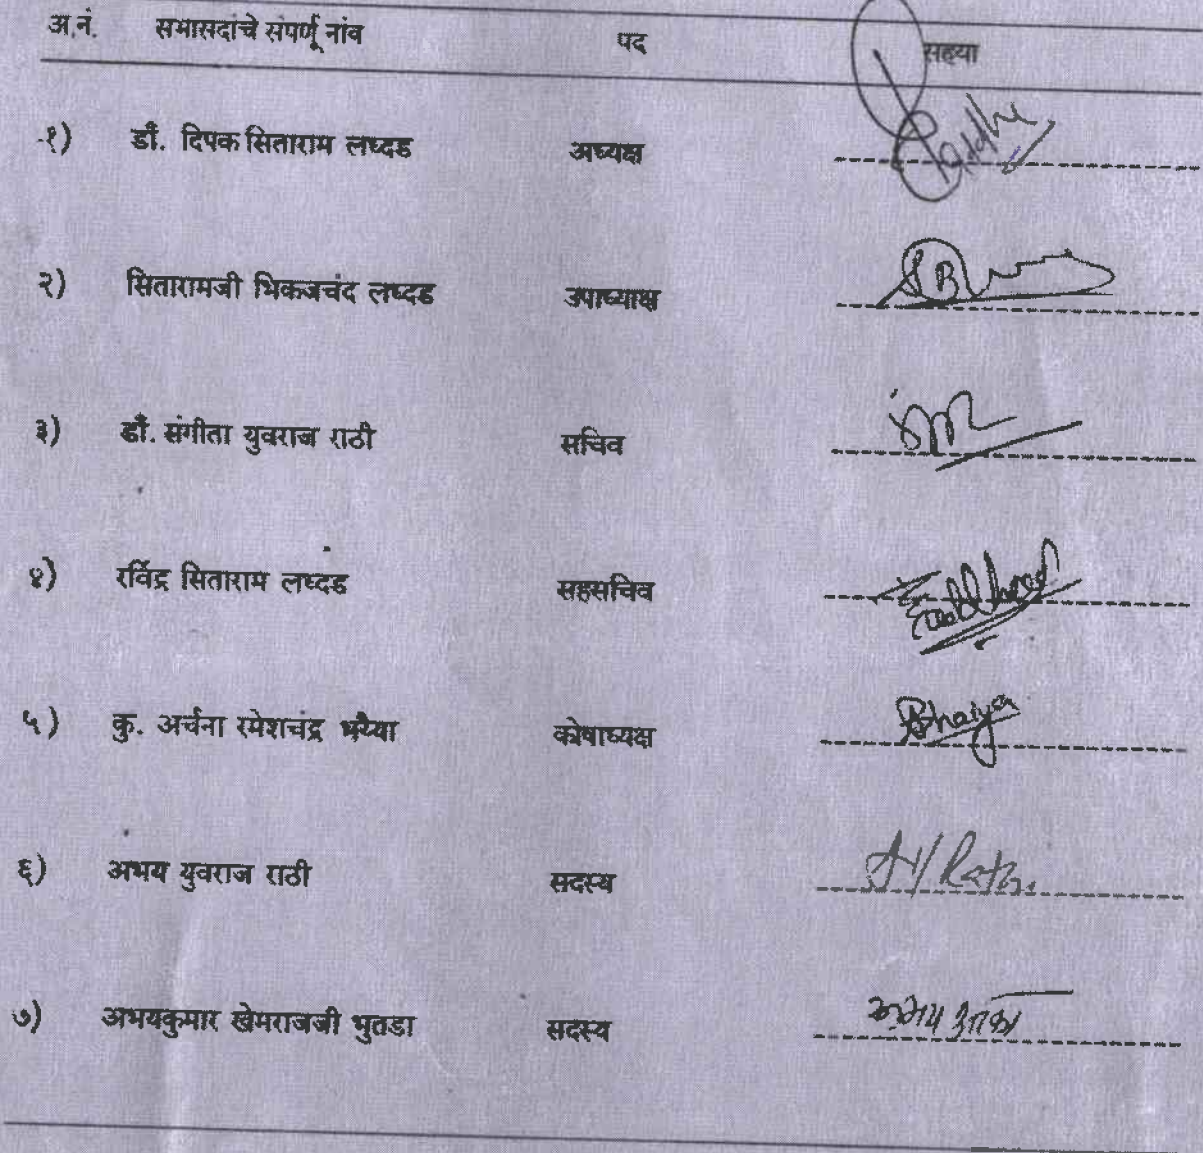 अ.नं. सभासदांचे संपर्णू नांव पद सहया
१) डॉ. दिपक सिताराम लध्दड अध्यक्ष
२) सितारामजी भिकजचंद लध्दड उपाध्याक्ष
३) डॉ. संगीता युवराज राठी सचिव
४) रविंद्र सिताराम लध्दड सहसचिव
५) कु. अर्चना रमेशचंद्र भय्या कोषाध्यक्ष Bhaiya
६) अभय युवराज राठी सदस्य AY Rathi
७) अभयकुमार खेमराजजी भुतडा सदस्य अभय भुतडा